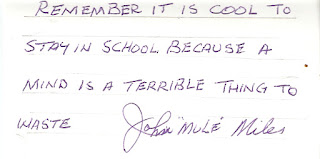 REMEMBER IT IS COOL TO
STAY IN SCHOOL BECAUSE A
MIND IS A TERRIBLE THING TO
WASTE John "MULE" Miles